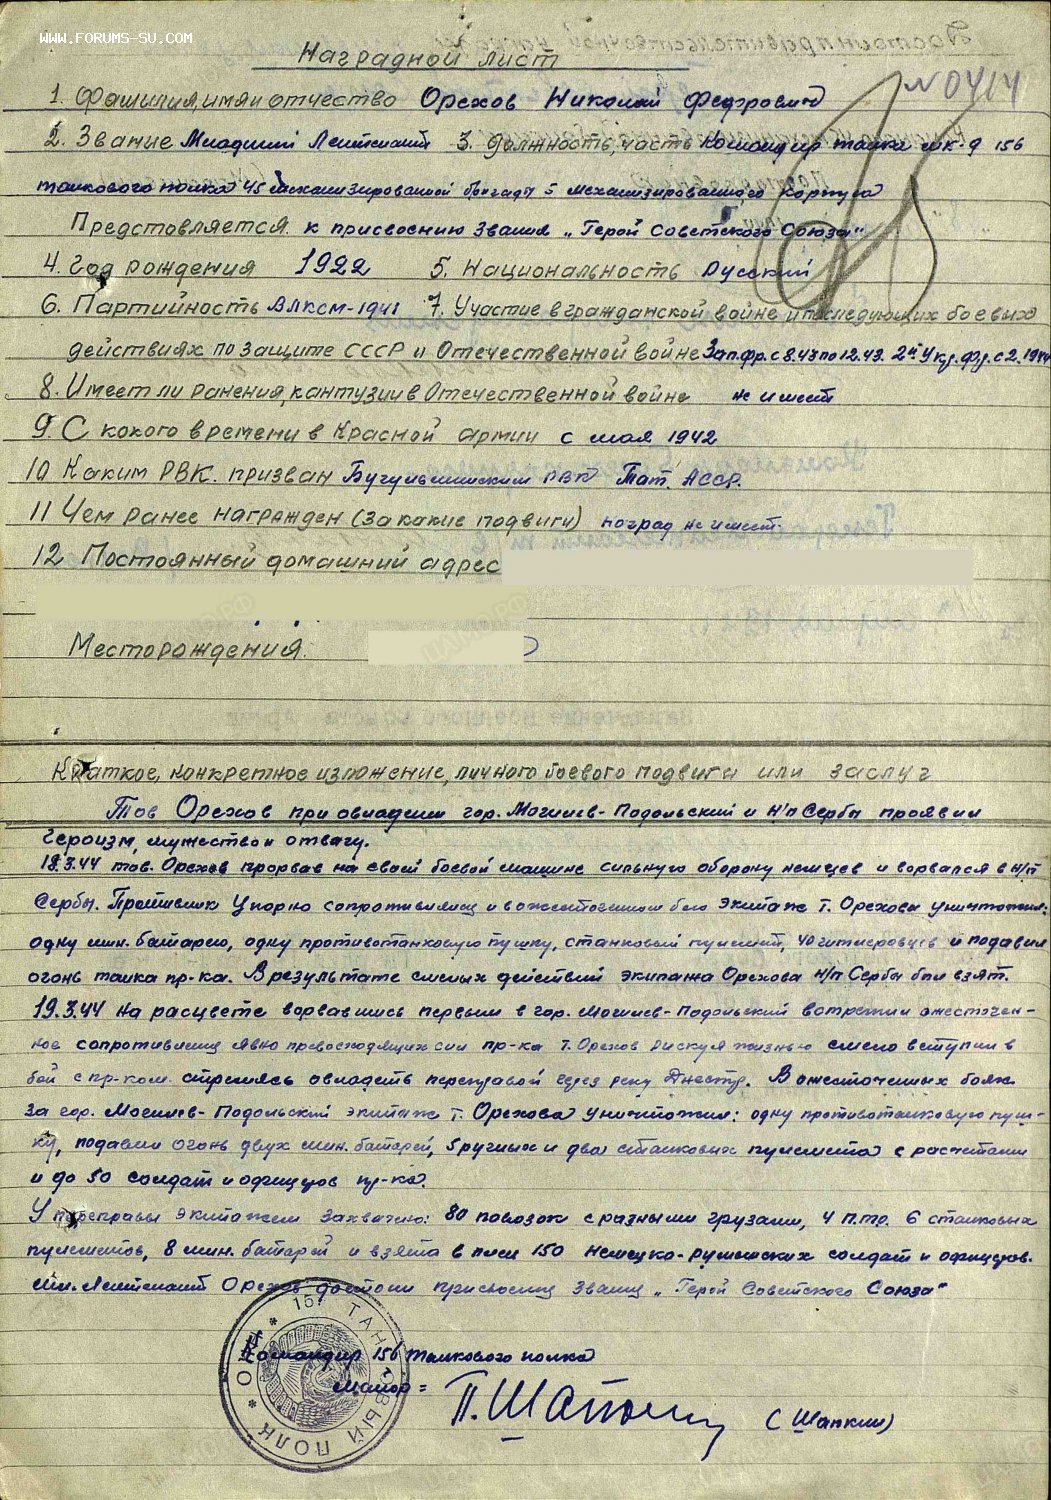 WWW.FORUMS-SU.COM
Наградной лист
№ 0414
1. Фамилия, имя и отчество Орехов Николай Федорович
2. Звание Младший Лейтенант 3. Должность, часть Командир танка мк-9 156
танкового полка 45 механизированной бригады 5 механизированного корпуса
Представляется к присвоению звания „Герой Советского Союза"
4. Год рождения 1922 5. Национальность Русский
6. Партийность ВЛКСМ-1941 7. Участие в гражданской войне и последующих боевых
действиях по защите СССР и Отечественной войне Зап.фр. с 8.43 по 12.43. 2й Укр.фр. с 2.1944
8. Имеет ли ранения, кантузии в Отечественной войне не имеет
9. С кокого времени в Красной армии с мая 1942
10 Каким РВК. призван Бугульминским РВК Тат. АССР.
11 Чем ранее награжден (за какие подвиги) наград не имеет.
12 Постоянный домашний адрес
Месторождения.
Краткое, конкретное изложение, личного боевого подвига или заслуг
Тов Орехов при овладении гор. Могилев-Подольский и н/п Сербы проявил
героизм, мужество и отвагу.
18.3.44 тов. Орехов прорвав на своей боевой машине сильную оборону немцев и ворвался в н/п
Сербы. Противник упорно сопротивлялся и в ожесточенном бою экипаж т. Орехова уничтожил:
одну мин. батарею, одну противотанковую пушку, станковый пулемет, 40 гитлеровцев и подавил
огонь танка пр-ка. В результате смелых действий экипажа Орехова н/п Сербы был взят.
19.3.44 на расцвете ворвавшись первым в гор. Могилев-Подольский встретил ожесточен-
ное сопротивление явно превосходящих сил пр-ка т. Орехов рискуя жизнью смело вступил в
бой с пр-ком. стремясь овладеть переправой через реку Днестр. В ожесточенных боях
за гор. Могилев-Подольский экипаж т. Орехова уничтожил: одну противотанковую пуш-
ку, подавил огонь двух мин. батарей, 5 ручных и два станковых пулемета с расчетами
и до 50 солдат и офицеров пр-ка.
У переправы экипажем захвачено: 80 повозок с разными грузами, 4 п.то. 6 станковых
пулеметов, 8 мин. батарей и взято в плен 150 немецко-румынских солдат и офицеров.
мл. Лейтенант Орехов достоин присвоения звания „Герой Советского Союза"
Командир 156 танкового полка
Майор =
П. Шапкин
(Шапкин)
ТАНКОВЫЙ ПОЛК